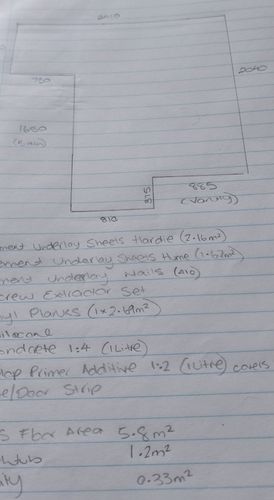 2040
760
1680
375
885
(Vanity)
810
ment Underlay Sheets Hardie (2.16m²)
ement Underlay Sheets Hume (1.62m²)
ment Underlay Nails (A10)
crew Extractor Set
nyl Planks (1x2.69m²)
ndcrete 1:4 (1 Litre)
Primer Additive 1:2 (1 Litre) covers
e/Door Strip
s Floor Area 5.8m²
htub 1.2m²
ity 0.33m²